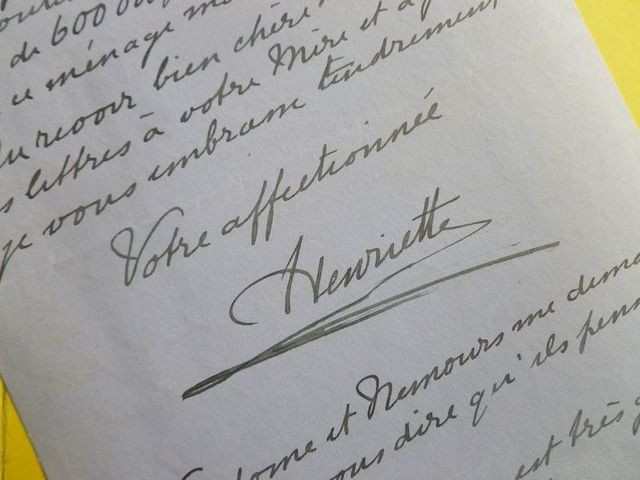 de 600
ce ménage
revoir bien chère
lettres à votre Mère et à
je vous embrasse tendrement
Votre affectionnée
Henriette
et Nemours me
vous dire qu'ils
est très